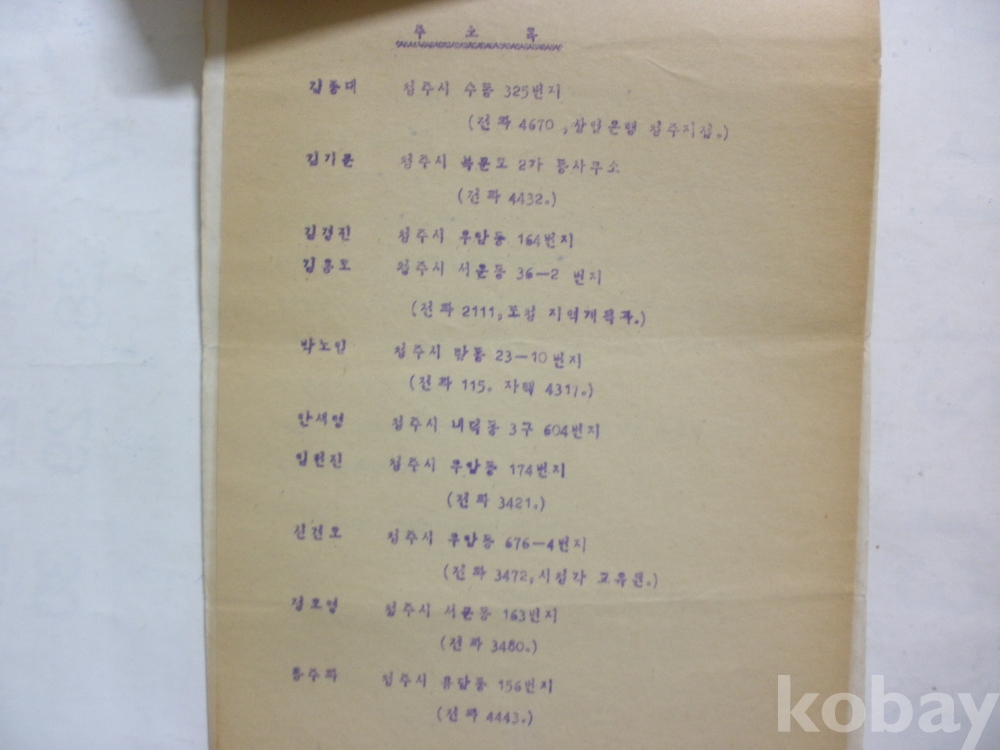 주 소 록
김종대 청주시 수동 325번지
(전화 4670, 상업은행 청주지점.)
김기룬 청주시 북문로 2가 동사무소
(전화 4432.)
김경진 청주시 우암동 164번지
김홍모 청주시 서운동 36-2 번지
(전화 2111, 도청 지역개획과.)
박노인 청주시 탑동 23-10번지
(전화 115. 자택 431/.)
안세영 청주시 내덕동 3구 604번지
임헌진 청주시 우암동 174번지
(전화 3421.)
신건호 청주시 우암동 676-4번지
(전화 3472, 시청각 교육원.)
정호영 청주시 서운동 163번지
(전화 3480.)
홍주화 청주시 동 156번지
(전화 4443.)
kobay